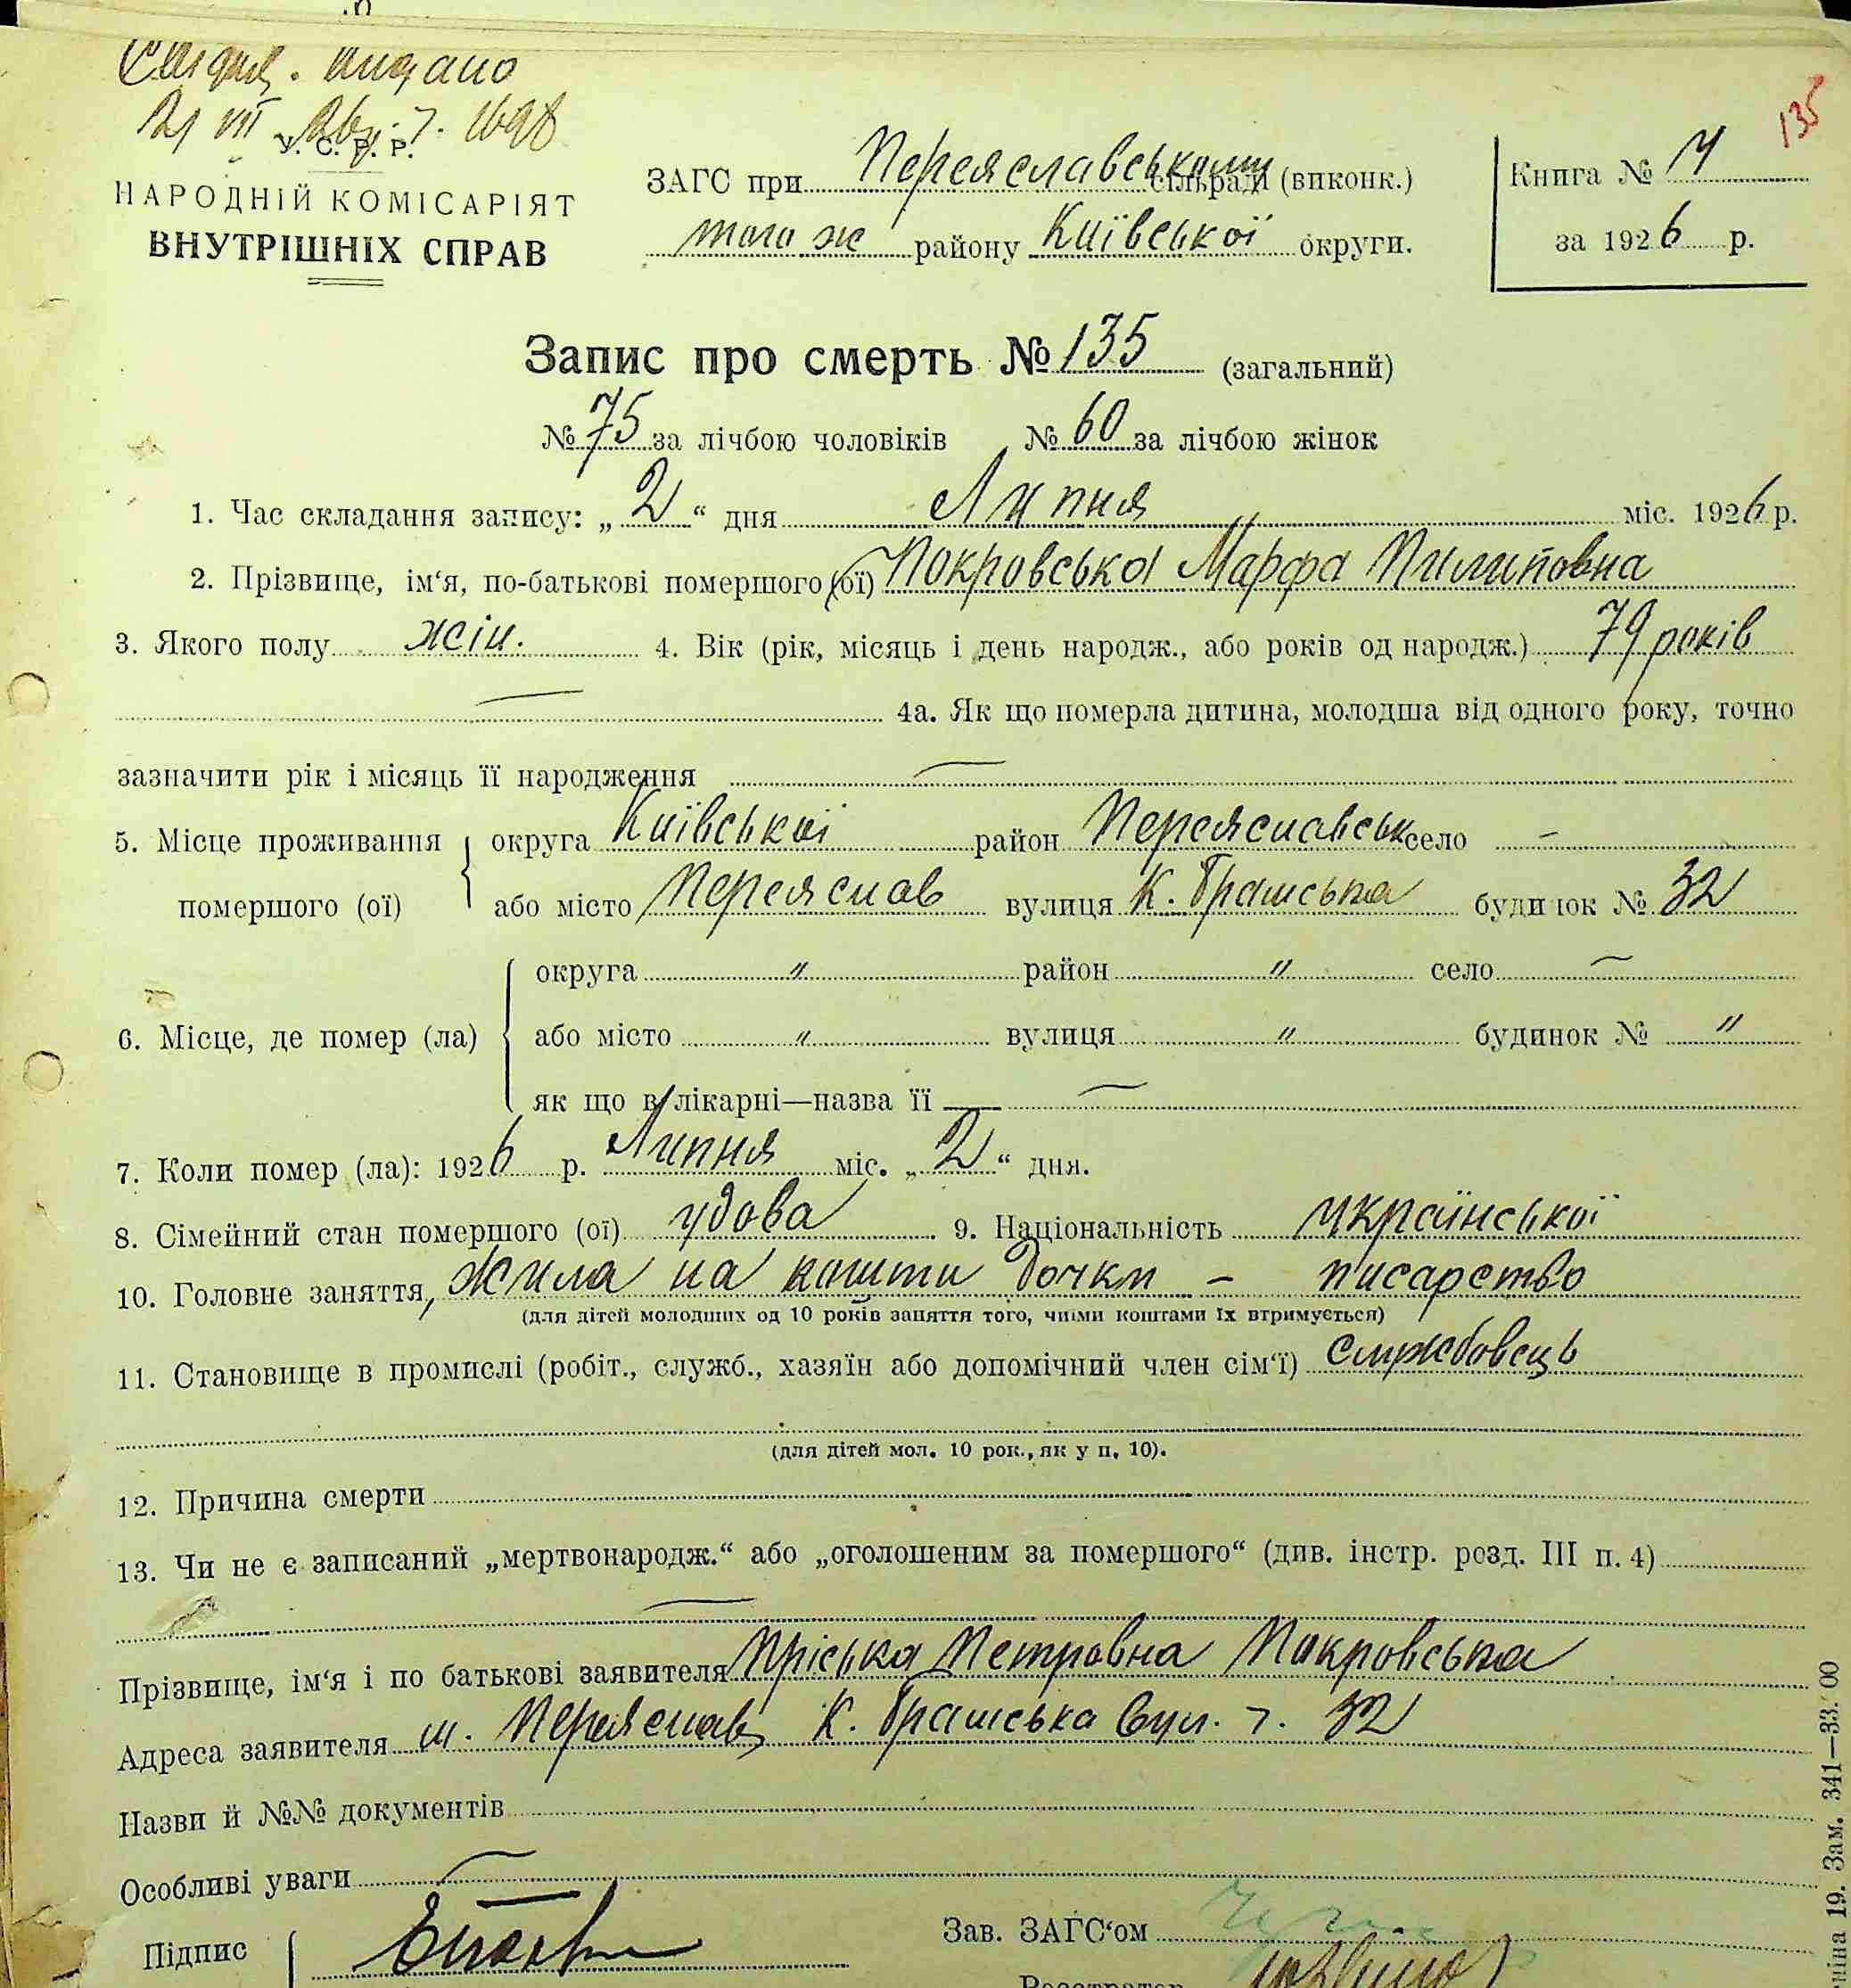 Свідоц. видано
21 VII 26 р. ч. 1698
135
У. С. Р. Р.
НАРОДНІЙ КОМІСАРІЯТ
ВНУТРІШНІХ СПРАВ
ЗАГС при Переяславському сільраді (виконк.)
того ж району Київської округи.
Книга №
за 1926 р.
Запис про смерть № 135 (загальний)
№ 75 за лічбою чоловіків № 60 за лічбою жінок
1. Час складання запису: „2“ дня Липня міс. 1926 р.
2. Прізвище, ім‘я, по-батькові помершого (ої) Покровська Марфа Пилиповна
3. Якого полу жін. 4. Вік (рік, місяць і день народж., або років од народж.) 79 років
— 4а. Як що померла дитина, молодша від одного року, точно
зазначити рік і місяць її народження —
5. Місце проживання помершого (ої) округа Київської район Переяславськ село —
або місто Переяслав вулиця К. Брамська будинок № 32
6. Місце, де помер (ла) округа " район " село —
або місто " вулиця " будинок № "
як що в лікарні—назва її —
7. Коли помер (ла): 1926 р. Липня міс. „2“ дня.
8. Сімейний стан помершого (ої) удова 9. Національність української
10. Головне заняття, жила на кошти дочки – писарство
(для дітей молодших од 10 років заняття того, чиїми коштами їх втримується)
11. Становище в промислі (робіт., служб., хазяїн або допомічний член сім‘ї) службовець
(для дітей мол. 10 рок., як у п. 10).
12. Причина смерти
13. Чи не є записаний „мертвонародж.“ або „оголошеним за помершого“ (див. інстр. розд. III п. 4)
—
Прізвище, ім‘я і по батькові заявителя Пріська Петровна Покровська
Адреса заявителя м. Переяслав, К. Брамська вул. ч. 32
Назви й №№ документів
Особливі уваги —
Підпис
Зав. ЗАГС‘ом
Реєстратор
19. Зам. 341—33.'00